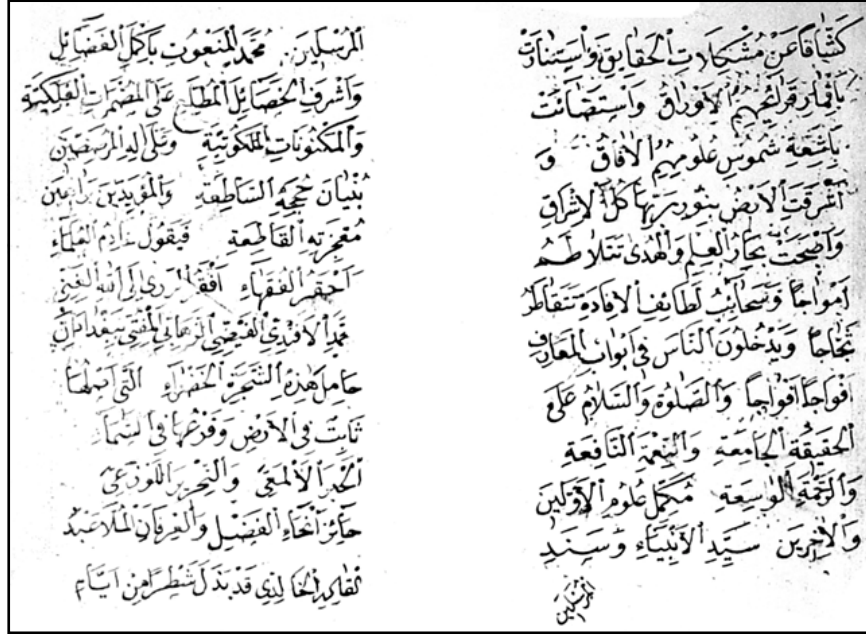 كَشّافًا عَنْ مُشْكِلاتِ الْحَقايِقِ وَاسْتَنارَتْ
بِأَقْمارِ قَرائِحِهِمُ الْأَوْراقُ وَاسْتَضائَتْ
بِأَشِعَّةِ شُمُوسِ عُلُومِهِمُ الْآفاقُ وَ
أَشْرَقَتِ الْأَرْضُ بِنُورِ رَبِّها كُلَّ الْإِشْراقِ
وَأَضْحَتْ بِحارُ الْعِلْمِ وَالْهُدى تَتَلاطَمُ
أَمْواجًا وَسَحائِبُ لَطائِفِ الْإِفادَةِ تَتَقاطَرُ
ثَجّاجًا وَيَدْخُلُونَ النّاسَ فى أَبْوابِ الْمَعارِفِ
أَفْواجًا أَفْواجًا وَالصَّلوةُ وَالسَّلامُ عَلَى
الْحَقيقَةِ الْجامِعَةِ وَالنِّعْمَةِ النّافِعَةِ
وَالرَّحْمَةِ الْواسِعَةِ مُكَمِّلِ عُلُومِ الْأَوَّلينَ
وَالْآخِرينَ سَيِّدِ الْأَنْبِياءِ وَسَنَدِ
المرسلين
الْمُرْسَلينَ مُحَمَّدٍ الْمَنْعُوتِ بِأَكْمَلِ الْفَضائِلِ
وَأَشْرَفِ الْخَصائِلِ الْمُطَّلِعِ عَلَى الْمُضْمَراتِ الْفَلَكِيَّةِ
وَالْمَكْنُوناتِ الْمَلَكُوتِيَّةِ وَعَلى آلِهِ الْمُرَصِّصينَ
بُنْيانَ حُجَجِهِ السّاطِعَةِ وَالْمُؤَيِّدينَ
مُعْجِزَتِهِ الْقاطِعَةِ فَيَقُولُ خادِمُ الْعُلَماءِ
أَحْقَرُ الْفُقَهاءِ أَفْقَرُ الْوَرى إِلَى اللهِ الْغَنِيِّ
مُحَمَّد الْأَفَنْدِي الْفَيْضِي الزَّهاوِي الْمُفْتي بِبَغْدادَ إِنَّ
حامِلَ هٰذِهِ الشَّجَرَةِ الْخَضْراءِ الَّتى أَصْلُها
ثابِتٌ فِى الْأَرْضِ وَفَرْعُها فِى السَّماءِ
الْحَبْرَ الْأَلْمَعِىَّ وَالنِّحْريرَ اللَّوْذَعِىَّ
حائِزَ أَنْحاءِ الْفَضْلِ وَالْعِرْفانِ الْمُلّا عَبْدُ
الْقادِرِ الَّذى قَدْ بَذَلَ شَطْرًا مِنْ أَيّامِ